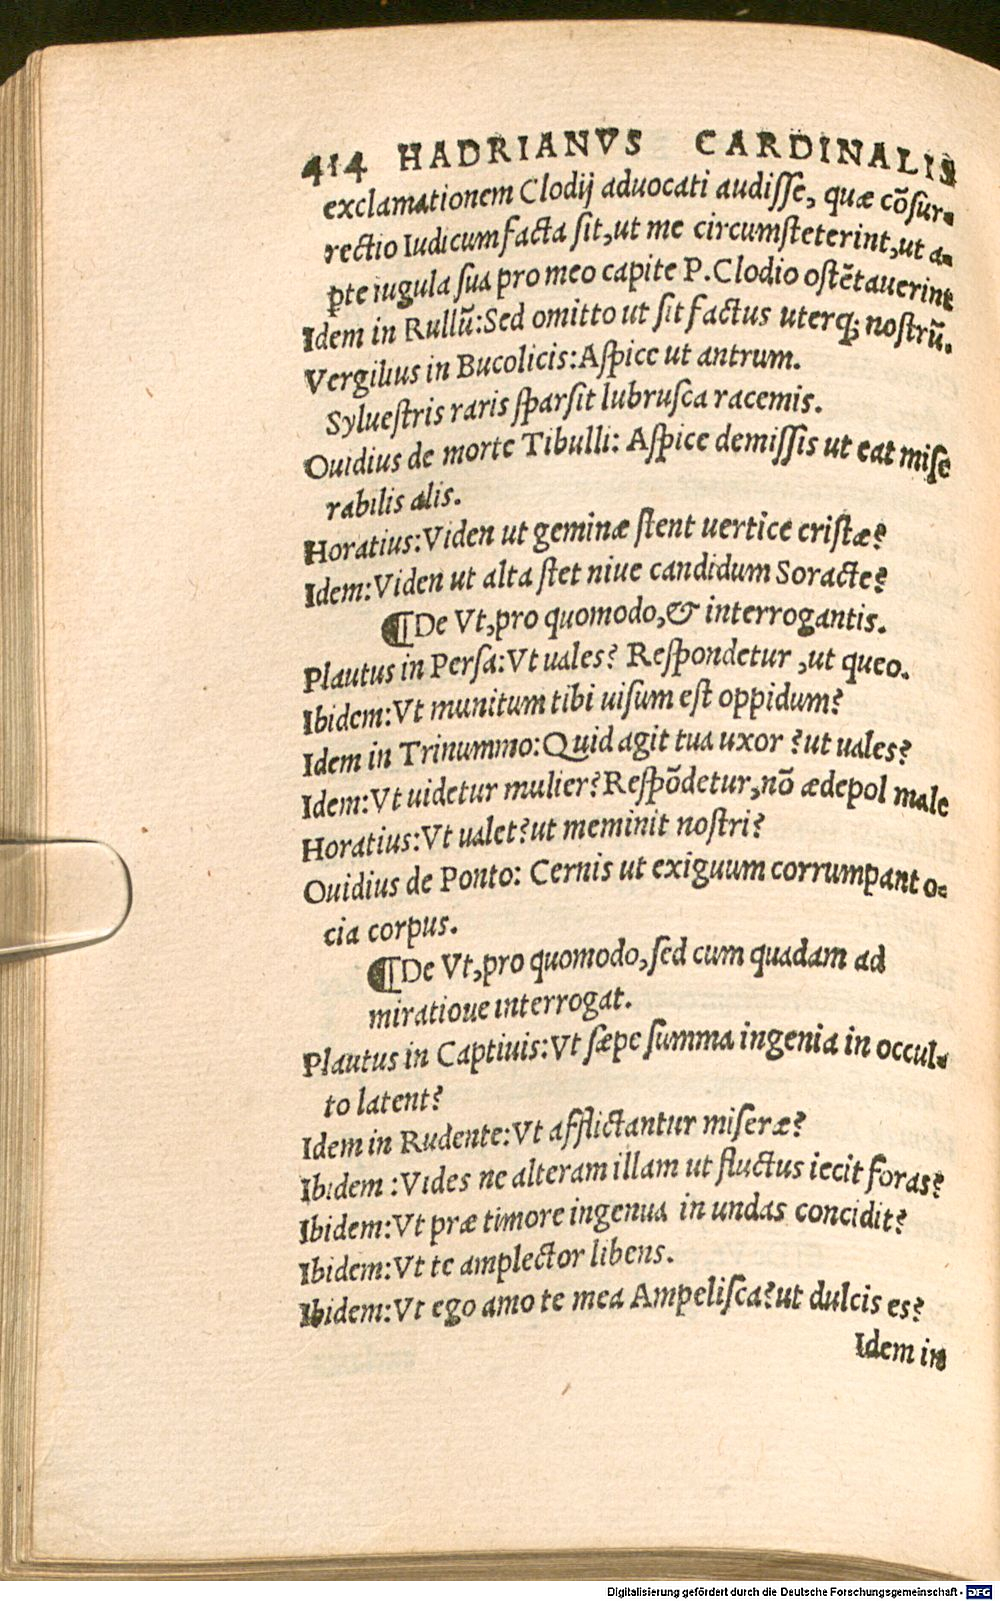 414 HADRIANVS CARDINALIS
exclamationem Clodij aduocati audisse, quæ cõsur-
rectio Iudicum facta sit, ut me circumsteterint, ut a-
ꝑte iugula sua pro meo capite P. Clodio ostẽtauerint
Idem in Rullũ: Sed omitto ut sit factus uterq; nostrũ.
Vergilius in Bucolicis: Aspice ut antrum.
Syluestris raris sparsit lubrusca racemis.
Ouidius de morte Tibulli: Aspice demissis ut eat mise
rabilis alis.
Horatius: Viden ut geminæ stent uertice cristæ?
Idem: Viden ut alta stet niue candidum Soracte?
¶De Vt, pro quomodo, & interrogantis.
Plautus in Persa: Vt uales? Respondetur, ut queo.
Ibidem: Vt munitum tibi uisum est oppidum?
Idem in Trinummo: Quid agit tua uxor? ut uales?
Idem: Vt uidetur mulier? Respõdetur, nõ ædepol male
Horatius: Vt ualet? ut meminit nostri?
Ouidius de Ponto: Cernis ut exiguum corrumpant o-
cia corpus.
¶De Vt, pro quomodo, sed cum quadam ad
miratioue interrogat.
Plautus in Captiuis: Vt sæpe summa ingenia in occul-
to latent?
Idem in Rudente: Vt afflictantur miseræ?
Ibidem: Vides ne alteram illam ut fluctus iecit foras?
Ibidem: Vt præ timore ingenua in undas concidit?
Ibidem: Vt te amplector libens.
Ibidem: Vt ego amo te mea Ampelisca? ut dulcis es?
Idem in
Digitalisierung gefördert durch die Deutsche Forschungsgemeinschaft - DFG